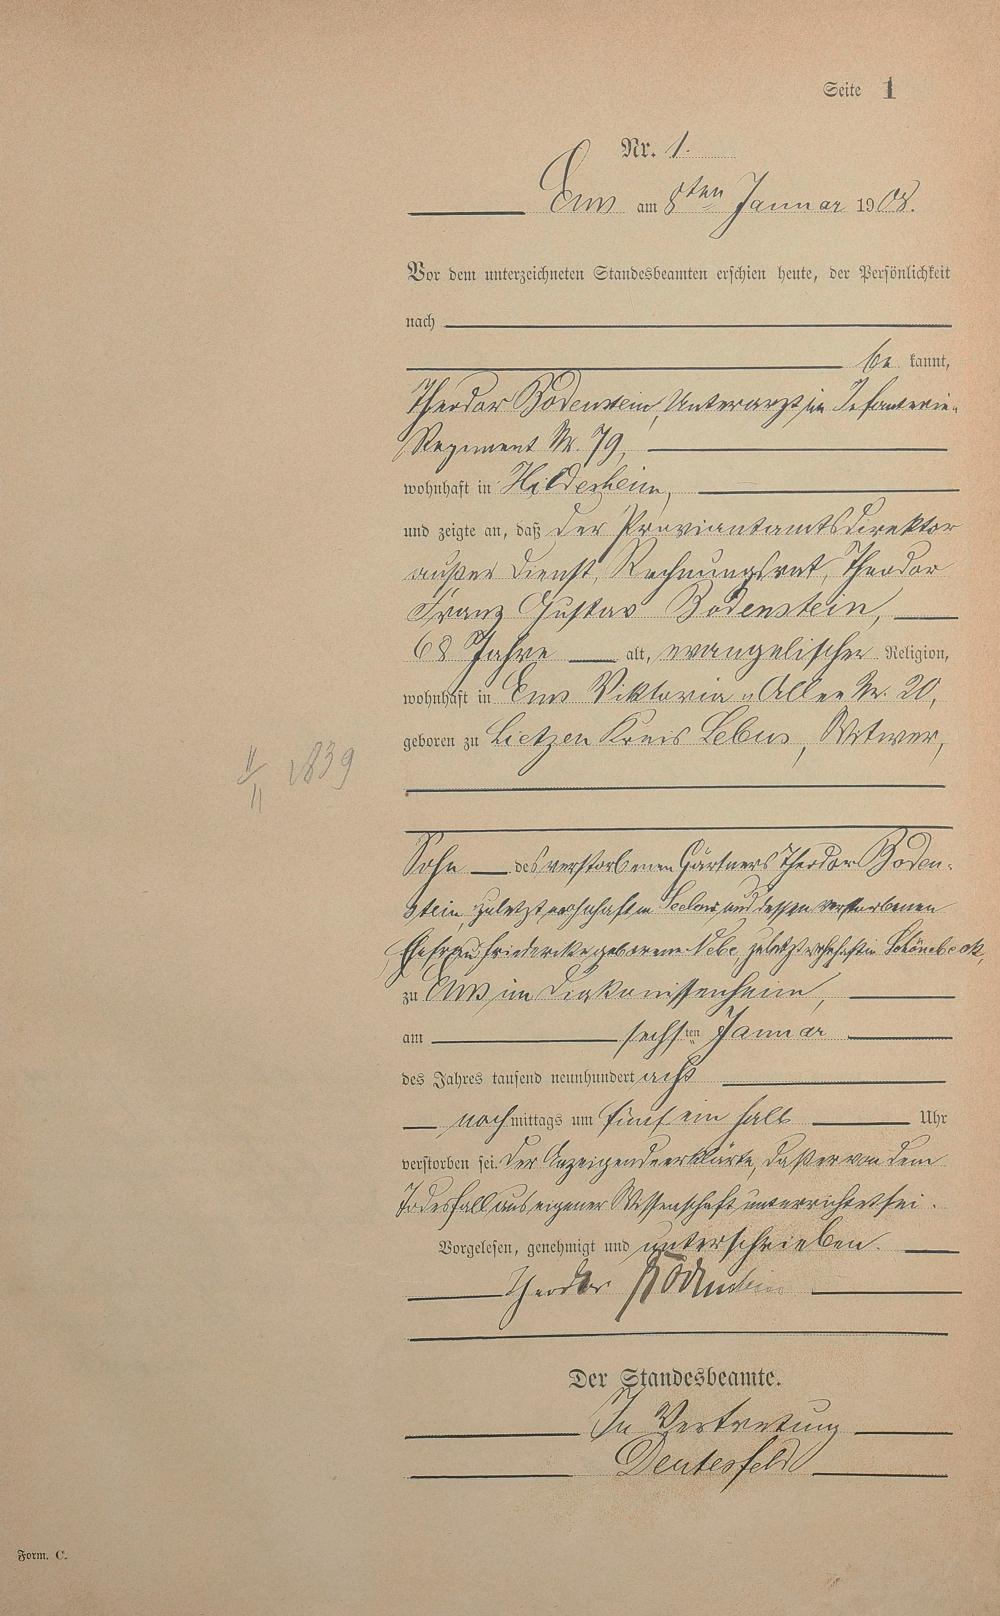 Seite 1
Nr. 1.
Ems am 8ten Januar 1908.
Vor dem unterzeichneten Standesbeamten erschien heute, der Persönlichkeit
nach
be kannt,
Theodor Bodenstein, Unterarzt im Infanterie-
Regiment Nr. 79,
wohnhaft in Hildesheim,
und zeigte an, daß der Proviantamtsdirektor
außer Dienst, Rechnungsrat, Theodor
Franz Gustav Bodenstein,
68 Jahre alt, evangelischer Religion,
wohnhaft in Ems Viktoria-Allee Nr. 20,
geboren zu Lietzen Kreis Lebus, Witwer,
11/11 1839
Sohn des verstorbenen Gärtners Theodor Boden-
stein, zuletzt wohnhaft in Seelow und dessen verstorbenen
Ehefrau Friedericke geborene, zuletzt wohnhaft in Schönebeck,
zu Ems im Diakonissenheim,
am sechsten Januar
des Jahres tausend neunhundert acht
nachmittags um fünf ein halb Uhr
verstorben sei. Der Anzeigende erklärte, daß er von dem
Todesfall aus eigener Wissenschaft unterrichtet sei.
Vorgelesen, genehmigt und unterschrieben.
Theodor Bodenstein
Der Standesbeamte.
In Vertretung
Deutesfeld
Form. C.